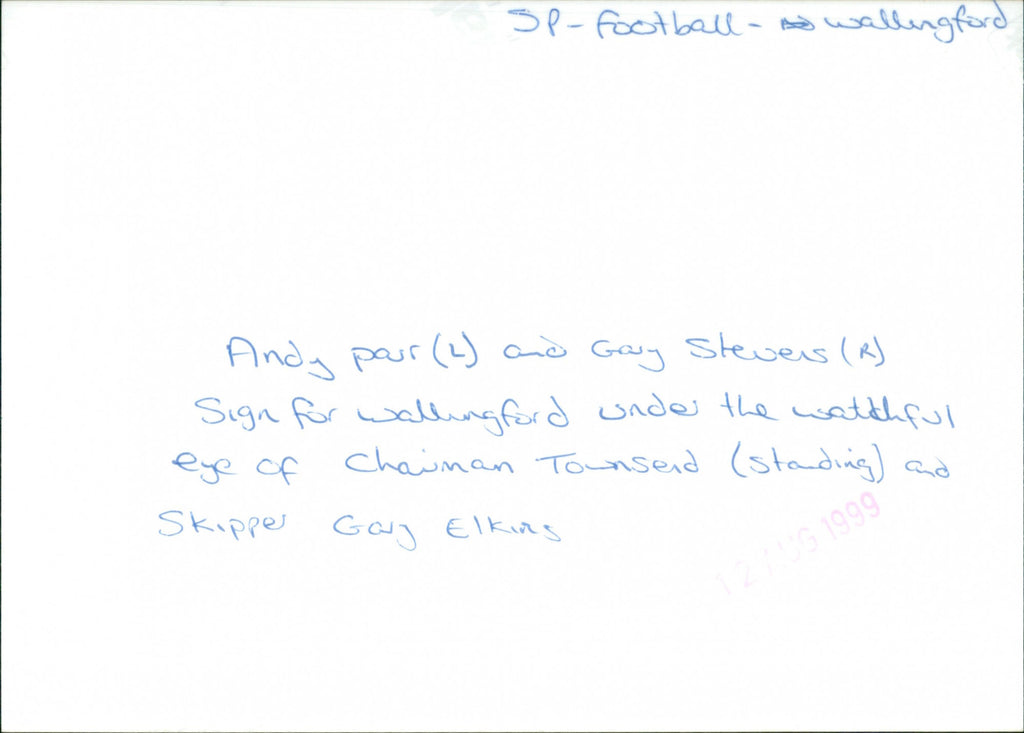 SP - Football - Wallingford
Andy parr (L) and Gary Stevens (R)
Sign for wallingford under the watchful
eye of Chairman Townsend (standing) and
Skipper Gary Elkins
12 AUG 1999